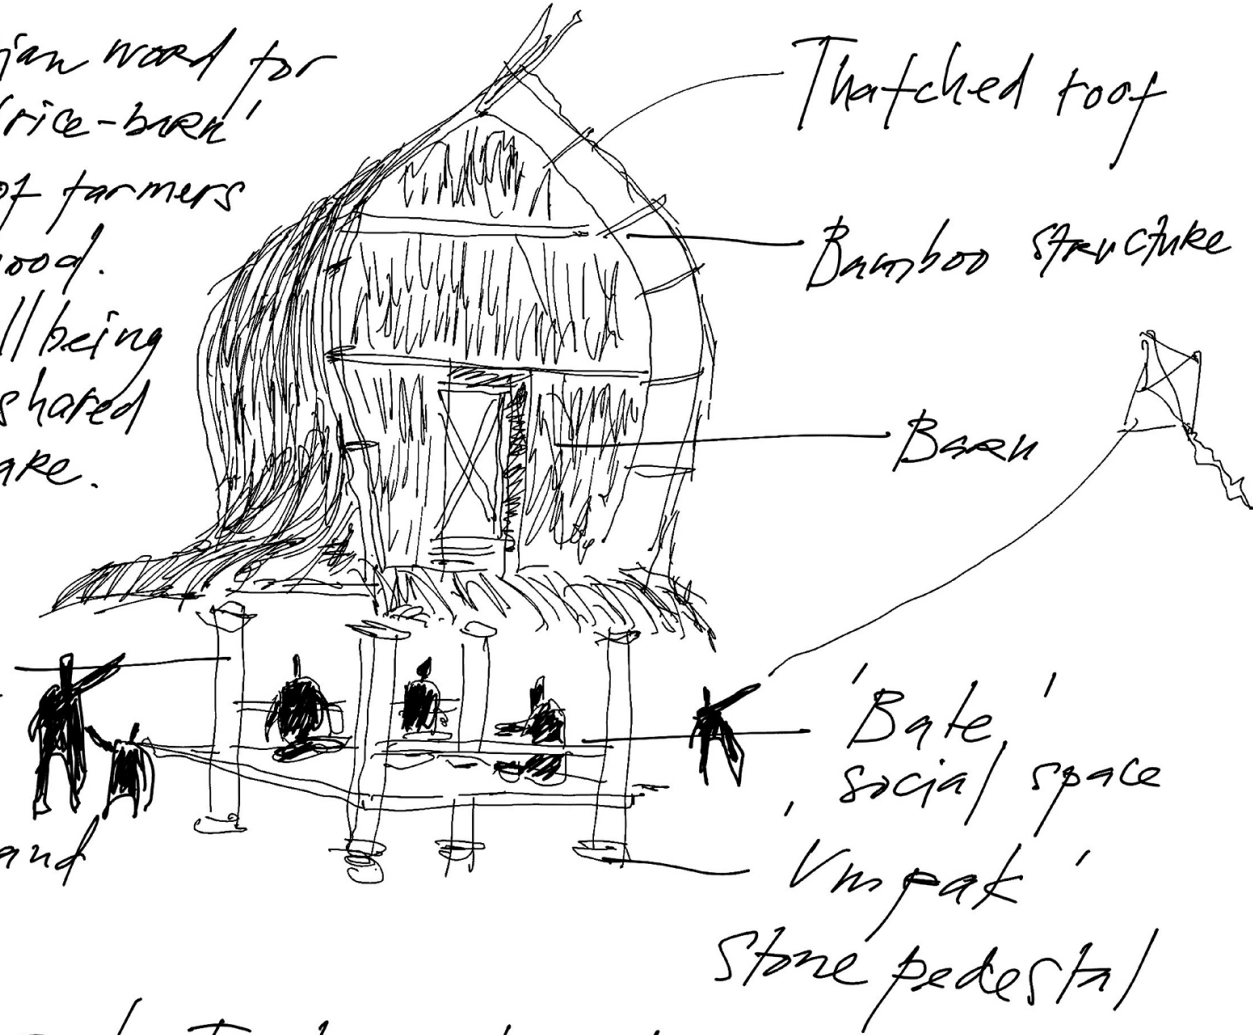 ian word for
'rice-barn'
of farmers
ood.
ll being
shared
ake.
and
Thatched roof
Bamboo structure
Barn
'Bale'
social space
'Umpak'
stone pedestal